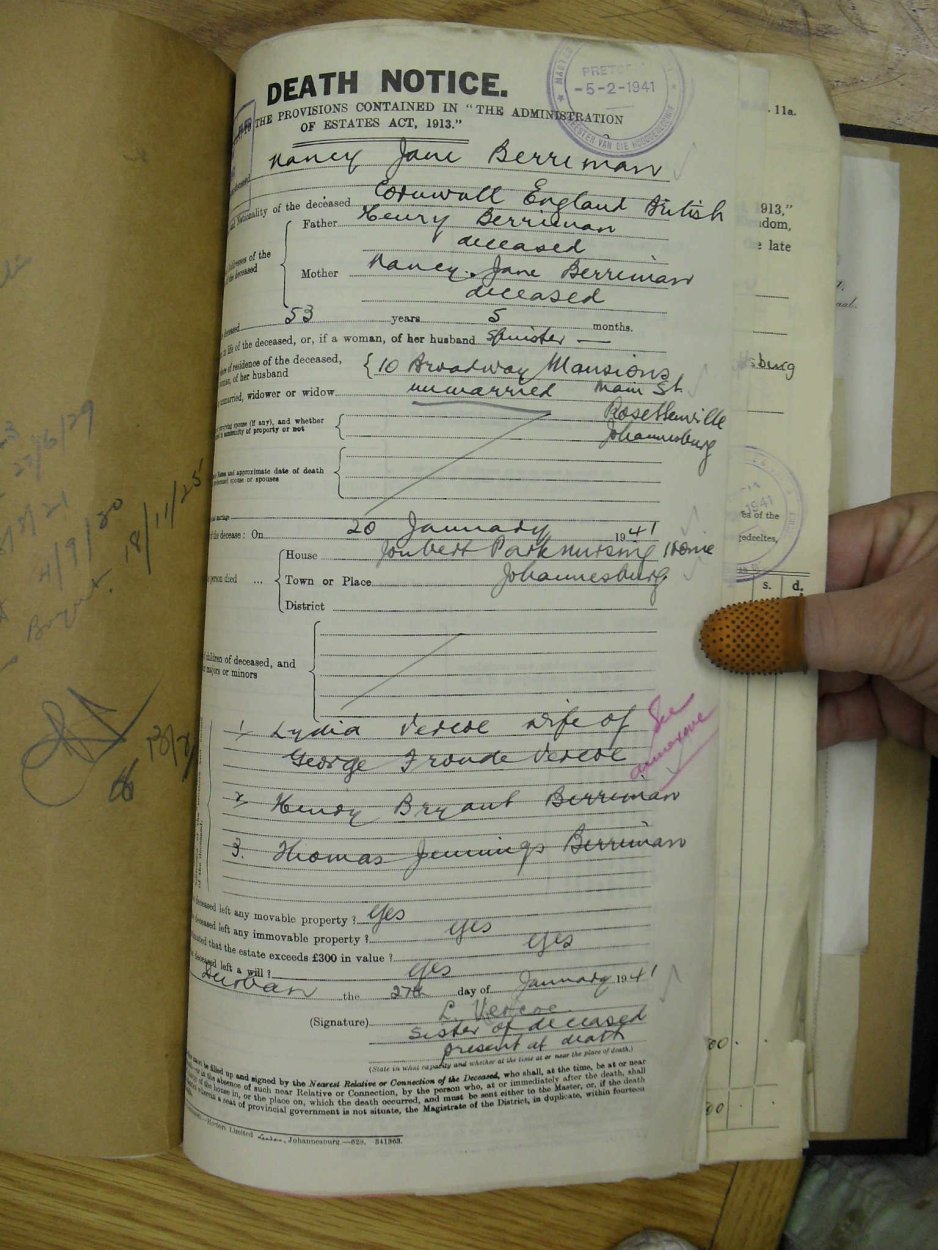 DEATH NOTICE.
PRETORIA
-5-2-1941
THE PROVISIONS CONTAINED IN "THE ADMINISTRATION
OF ESTATES ACT, 1913."
11a.
Nancy Jane Berriman
Nationality of the deceased Cornwall England British
Father Henry Berriman
deceased
Mother Nancy Jane Berriman
deceased
53 years 5 months.
life of the deceased, or, if a woman, of her husband Spinster —
of residence of the deceased, { 10 Broadway Mansions
of her husband
Main St
unmarried, widower or widow unmarried
Rosettenville
Johannesburg
spouse (if any), and whether
in community of property or not
Name and approximate date of death
spouse or spouses
marriage
decease: On 20 January 1941
House Joubert Park nursing Home
person died ... Town or Place Johannesburg
District
children of deceased, and
majors or minors
1, Lydia Vercoe wife of
George Froude Vercoe
See annexure
2, Henry Bryant Berriman
3. Thomas Jennings Berriman
deceased left any movable property? Yes
deceased left any immovable property? yes
that the estate exceeds £300 in value? yes
deceased left a will? yes
Durban the 27th day of January 1941
(Signature) L. Vercoe
Sister of deceased
present at death
(State in what capacity and whether at the time at or near the place of death.)
must be filled up and signed by the Nearest Relative or Connection of the Deceased, who shall, at the time, be at or near
in the absence of such near Relative or Connection, by the person who, at or immediately after the death, shall
of the house in, or the place on, which the death occurred, and must be sent either to the Master, or, if the death
a seat of provincial government is not situate, the Magistrate of the District, in duplicate, within fourteen
Limited London, Johannesburg.—629. 341363.
1913,"
the late
sburg
1941
s. d.
18/11/25
4/9/30